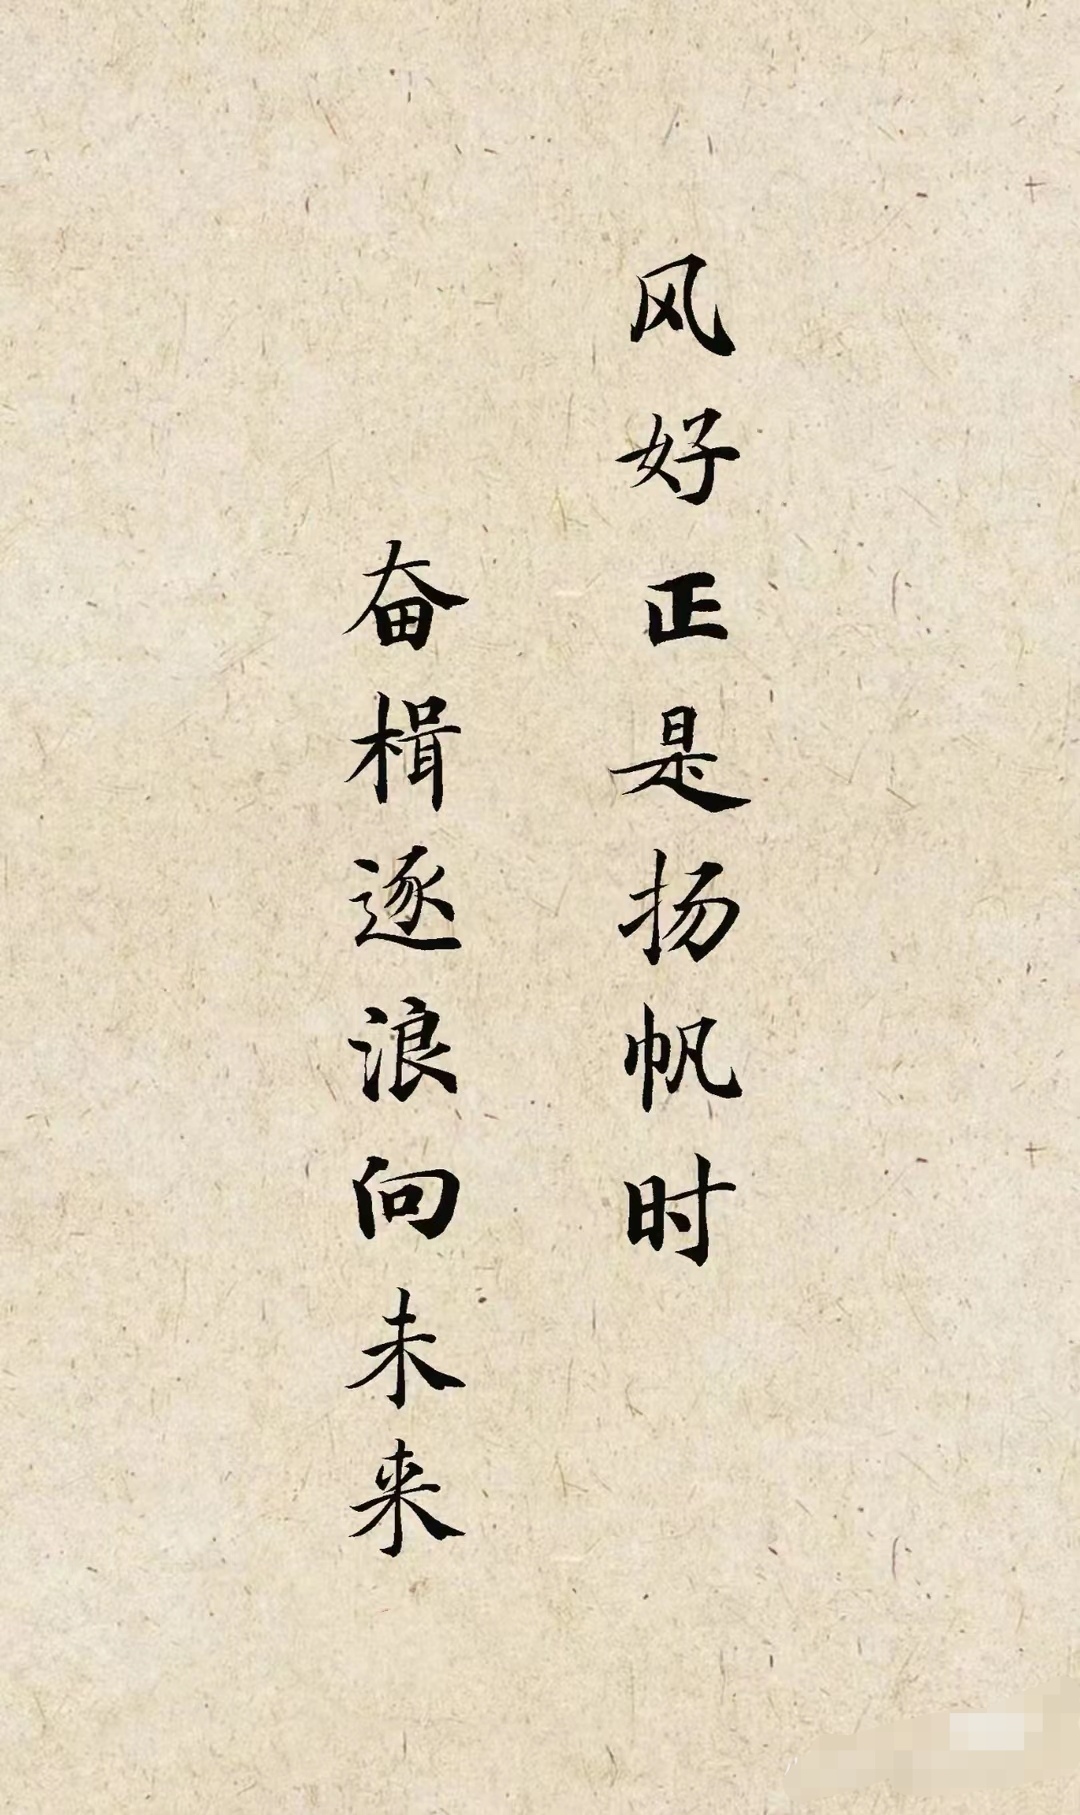 风好正是扬帆时
奋楫逐浪向未来